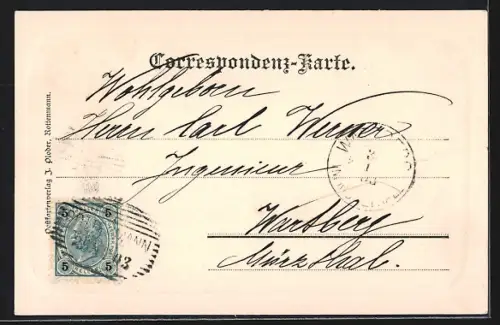 Correspondenz-Karte.
Wohlgeborn
Herrn Carl Werner
Ingenieur
Wartberg
Mürzthal.
Postkartenverlag J. Ploder, Rottenmann.
5 5
5 5
MANN
03